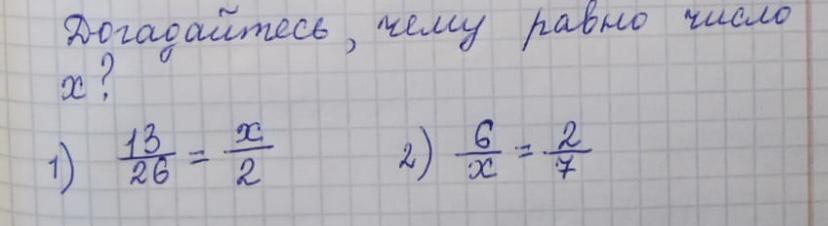 Догадайтесь, чему равно число
x?
1) 13/26 = x/2 2) 6/x = 2/7